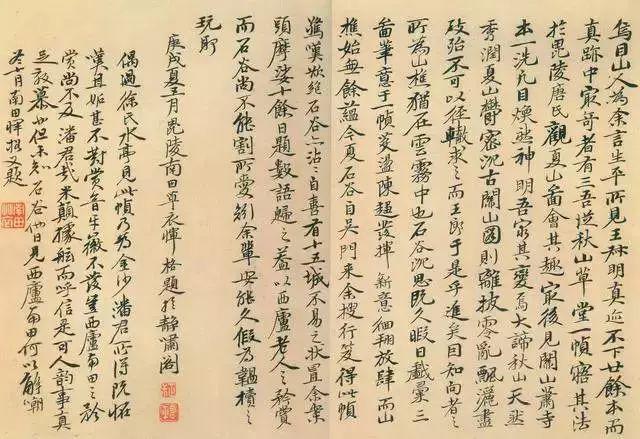 烏目山人為余言生平所見王叔明真迹不下廿餘本而
真跡中最奇者有三吾從秋山草堂一幀寤其法
於毘陵唐氏觀夏山圖會其趣最後見關山蕭寺
本一洗凡目煥然神明吾窮其變焉大諦秋山天然
秀潤夏山鬱密沉古關山圖則離披零亂飄灑盡
致殆不可以徑轍求之而王郎于是乎進矣因知向者之
所為山樵猶在雲霧中也石谷沉思既久暇日戲彙三
圖筆意于一幀盪滌陳趨發揮新意徊翔放肆而山
樵始無餘蘊今夏石谷自吳門來余搜行笈得此幀
驚嘆欲絕石谷亦沾沾自喜有十五城不易之狀置余案
頭摩娑十餘日題數語歸之蓋以西廬老人之矜賞
而石谷尚不能割所愛矧余輩安能久假為韞櫝之
玩耶
庚戌夏五月毘陵南田草衣惲格題於靜嘯閣
偶過徐氏水亭見此幀乃為金沙潘君所得既怪
嘆且妬甚不對賞音牙徽不發豈西廬南田之矜
賞尚不及潘君哉米顛據舷而呼信是可人韻事真
足效慕也但未知石谷他日見西廬南田何以解嘲
冬十月南田惲格又題